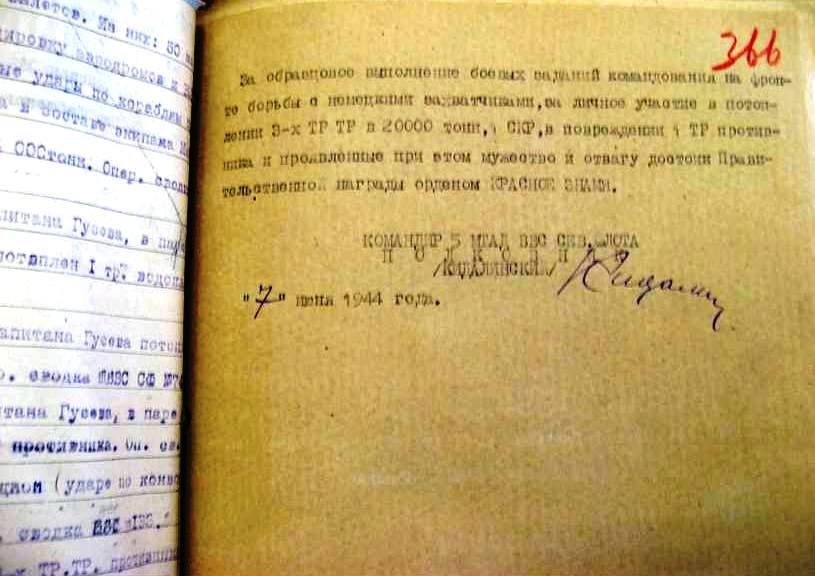 вылетов. Из них: 50
удары по кораблям
в составе экипажа
Опер.
капитана Гусева, в паре
потоплен I тр.
капитана Гусева
сводка ВВС СФ
Гусева, в паре
противника. Оп. св.
(ударе по
сводка ВВС
ТР.ТР. противника
366
За образцовое выполнение боевых заданий командования на фрон-
те борьбы с немецкими захватчиками, за личное участие в потоп-
лении 3-х ТР ТР в 20000 тонн, 1 СКР, в повреждении 1 ТР против-
ника и проявленные при этом мужество и отвагу достоин Прави-
тельственной награды орденом КРАСНОЕ ЗНАМЯ.
КОМАНДИР 5 МТАД ВВС СЕВ.ФЛОТА
П О Л К О В Н И К
/КИДАЛИНСКИЙ/ Кидалин
"7" июня 1944 года.